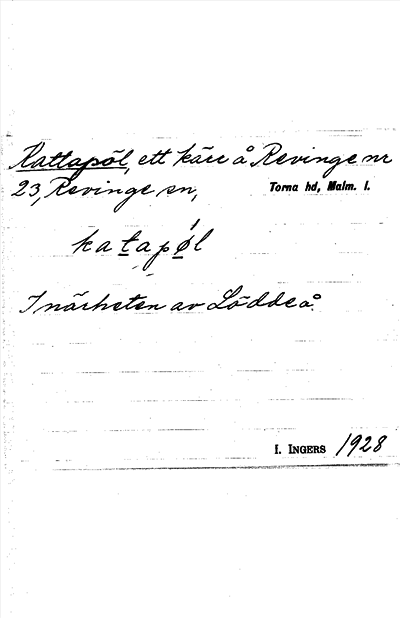 Kattapöl, ett kärr å Revinge nr
23, Revinge sn, Torna hd, Malm. l.
katapǿl
I närheten av Löddeå.
I. INGERS 1928